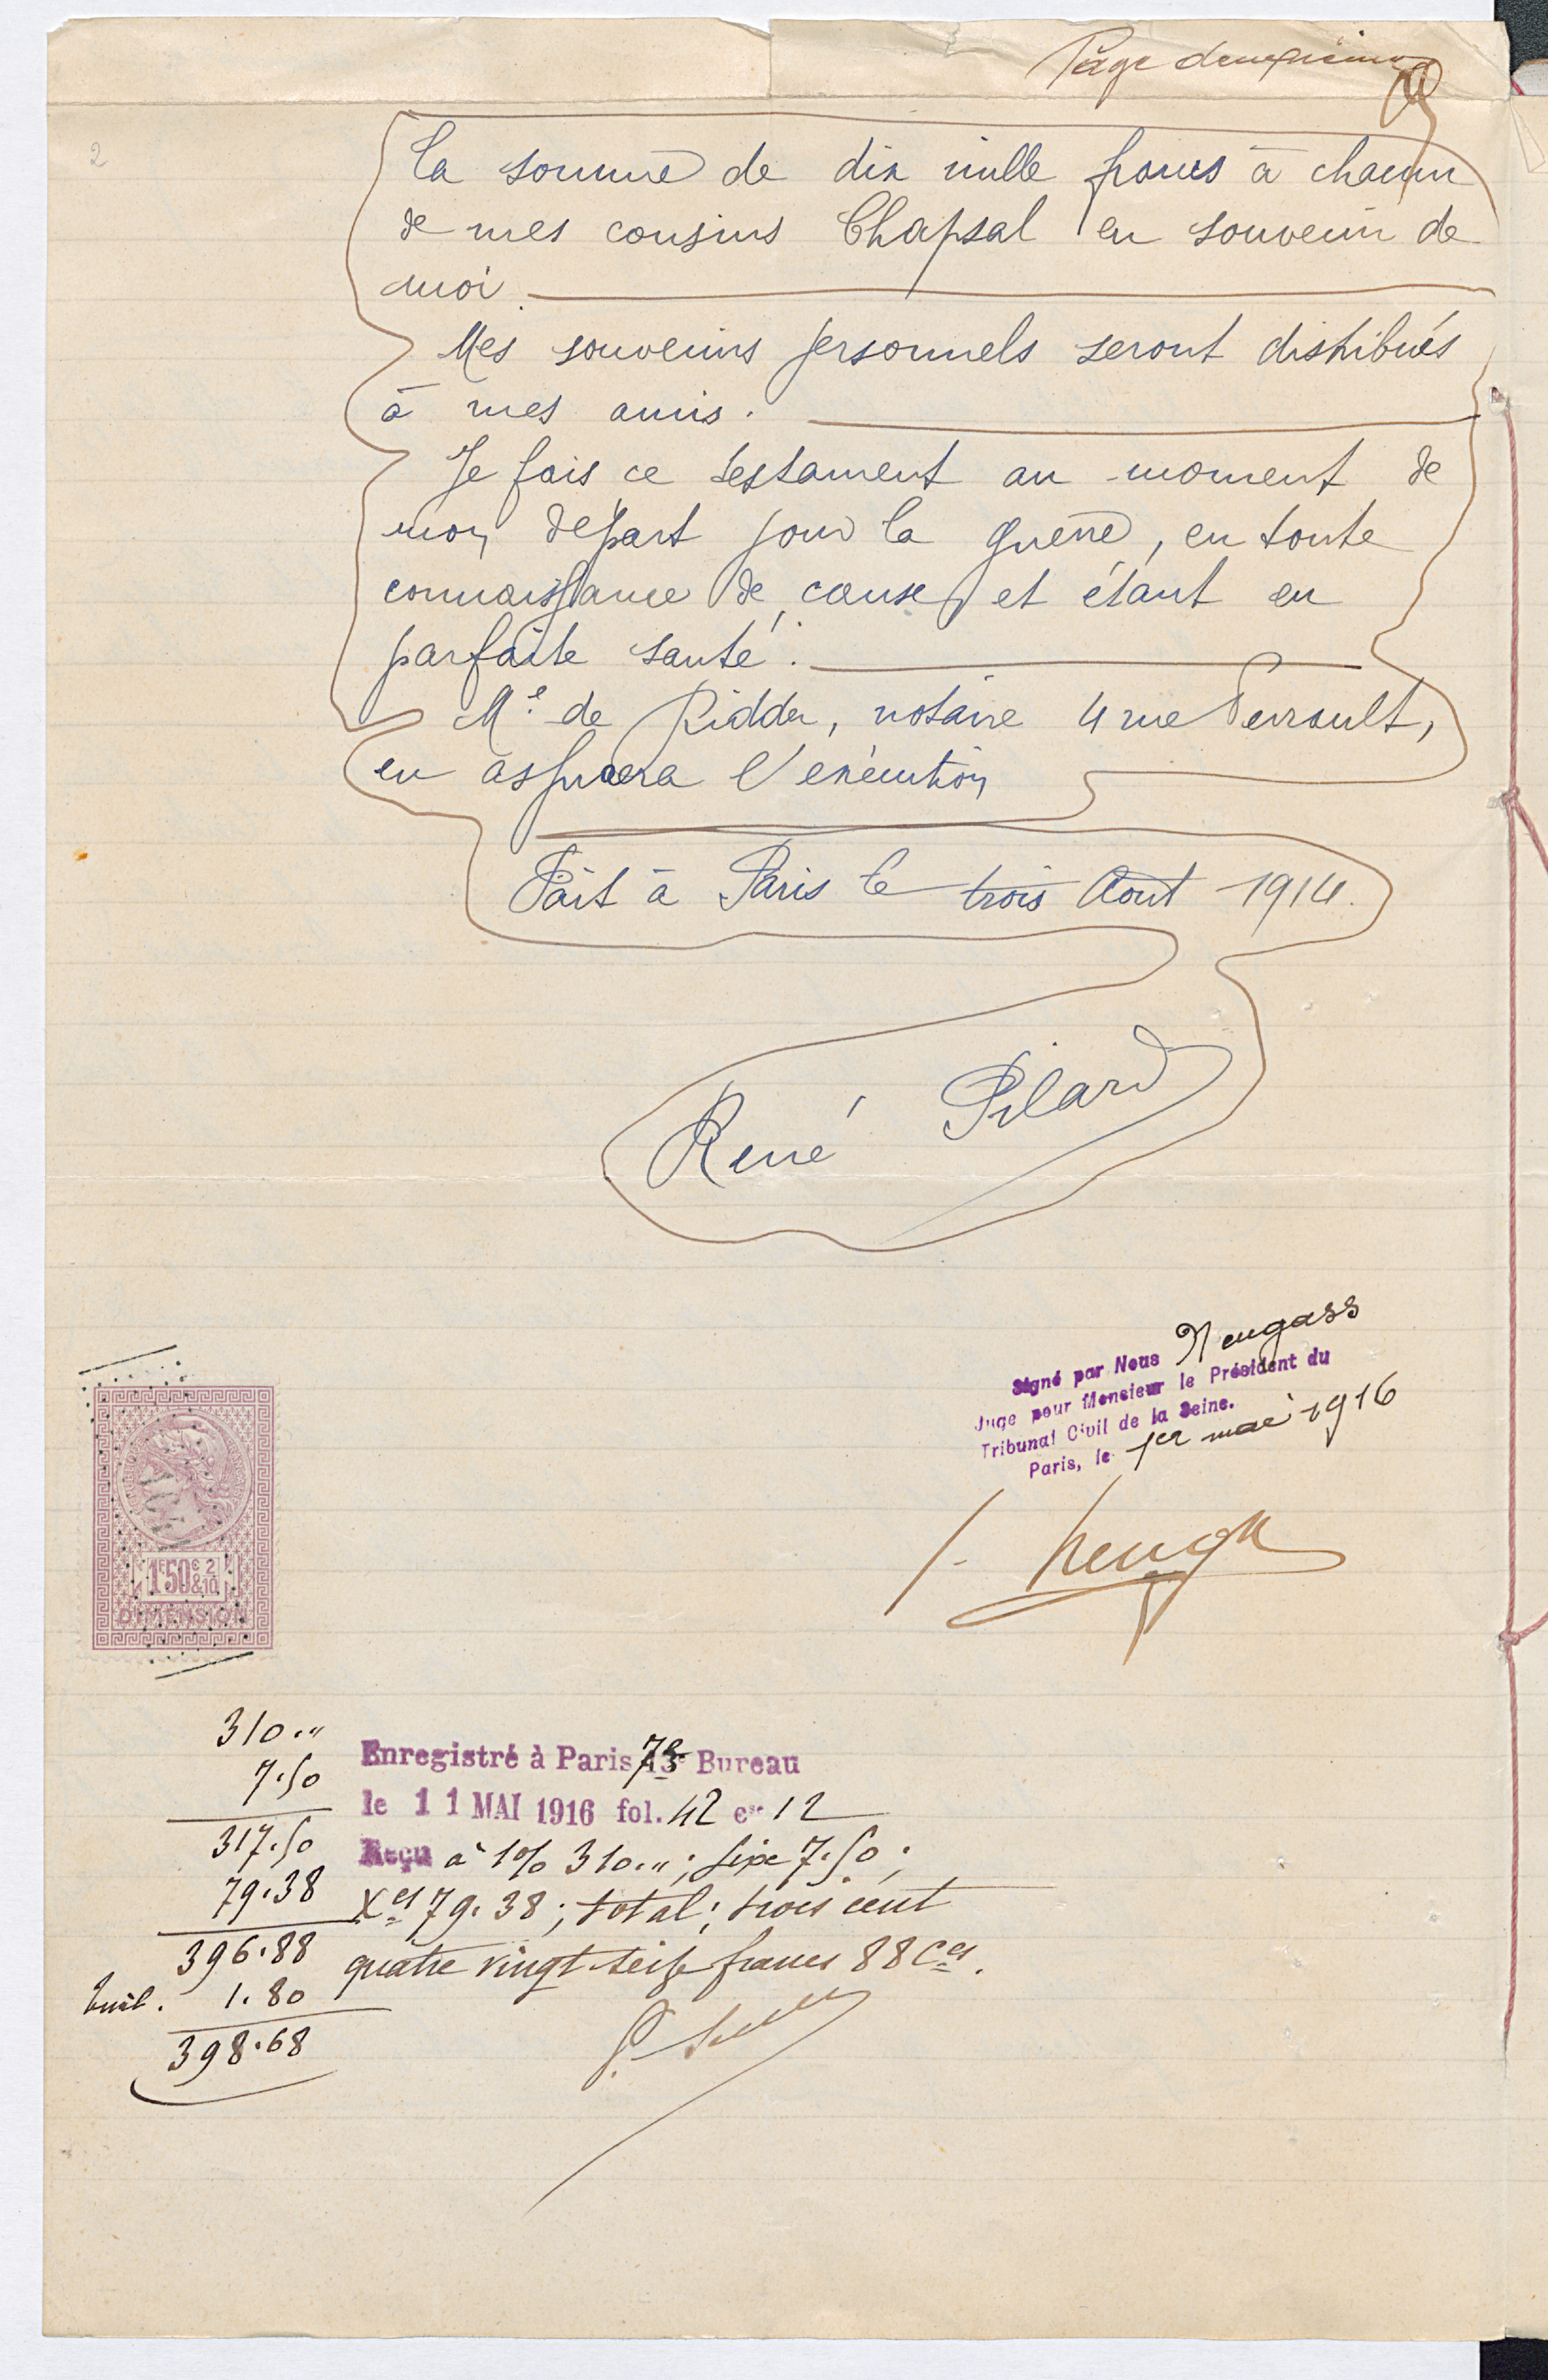 Page deuxième
2
la somme de dix mille francs à chacun
de mes cousins Chapsal en souvenir de
moi.
Mes souvenirs personnels seront distribués
à mes amis.
Je fais ce testament au moment de
mon départ pour la guerre, en toute
connaissance de cause et étant en
parfaite santé.
Me de Ridder, notaire 4 rue Perrault,
en assurera l'exécution
Fait à Paris le trois Aout 1914.
René Pilard
Signé par Nous Neugass
Juge pour Monsieur le Président du
Tribunal Civil de la Seine.
Paris, le 1er mai 1916
1F50c & 2/10
DIMENSION
310."
7.50
317.50
79.38
396.88
1.80
398.68
Enregistré à Paris 7e Bureau
le 11 MAI 1916 fol. 42 ce 12
Reçu à 1% 310."; fixe 7.50;
Xes 79.38; total: trois cent
quatre vingt seize francs 88 ces.